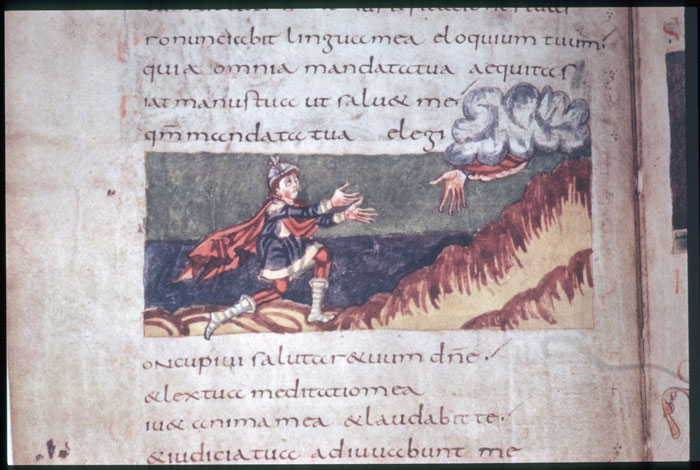 ronunciabit lingua mea eloquium tuum.
quia omnia mandata tua aequitas
iat manus tua ut salu& me
qm̄ mandata tua elegi
oncupiui salutar&uum dn̄e.
& lex tua meditatio mea
iu& anima mea & laudabit te.
& iudicia tua adiuuabunt me